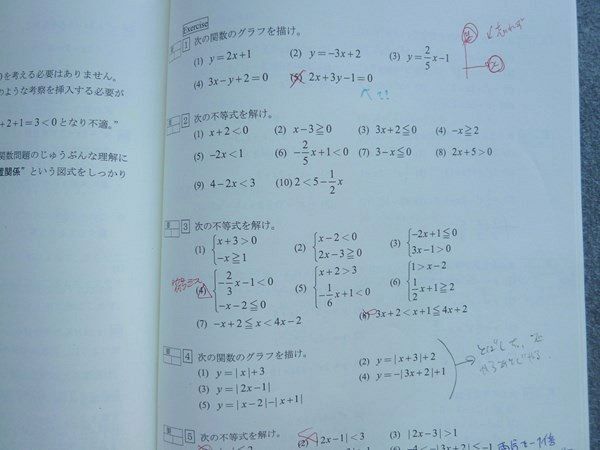 を考える必要はありません。
のような考察を挿入する必要が
+2+1=3<0となり不適。"
関数問題のじゅうぶんな理解に
置関係"という図式をしっかり
Exercise
1 次の関数のグラフを描け。
(1) y=2x+1 (2) y=-3x+2 (3) y=2/5x-1
(4) 3x-y+2=0 (5) 2x+3y-1=0
2 次の不等式を解け。
(1) x+2<0 (2) x-3≧0 (3) 3x+2≦0 (4) -x≧2
(5) -2x<1 (6) -2/5x+1<0 (7) 3-x≦0 (8) 2x+5>0
(9) 4-2x<3 (10) 2<5-1/2x
3 次の不等式を解け。
(1) {x+3>0 (2) {x-2<0 (3) {-2x+1≦0
-x≧1 2x-3≧0 3x-1>0
(4) {-2/3x-1<0 (5) {x+2>3 (6) {1>x-2
-x-2≦0 -1/6x+1<0 1/2x+1≧2
(7) -x+2≦x<4x-2 (8) 3x+2<x+1≦4x+2
4 次の関数のグラフを描け。
(1) y=|x|+3 (2) y=|x+3|+2
(3) y=|2x-1| (4) y=-|3x+2|+1
(5) y=|x-2|-|x+1|
5 次の不等式を解け。
(2) |2x-1|<3 (3) |2x-3|>1